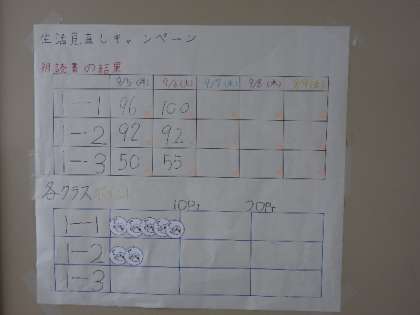 生活見直しキャンペーン
朝読書の結果
9/5(月) 9/6(火) 9/7(水) 9/8(木) 9/9(金)
1-1 96 100
1-2 92 92
1-3 50 55
各クラスポイント
10P 20P
1-1
1-2
1-3